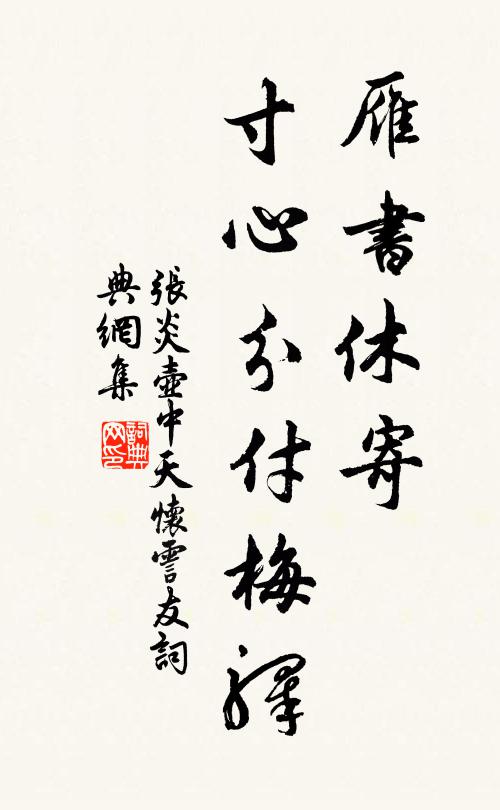 雁書休寄
寸心分付梅驛
張炎壺中天懷霅友詞
典網集
詞典
网印